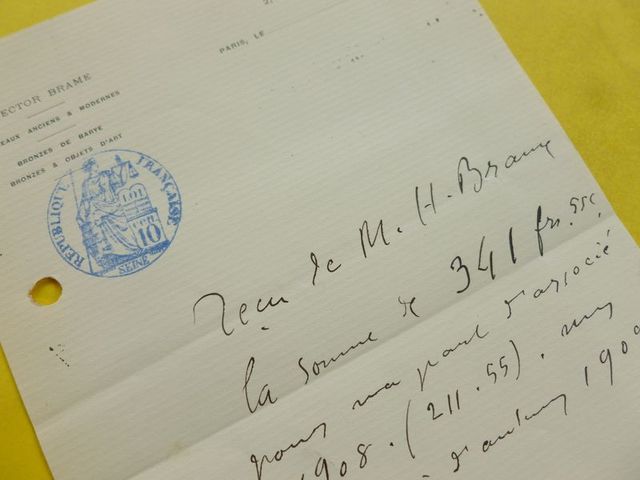 2,
PARIS, LE
ECTOR BRAME
EAUX ANCIENS & MODERNES
BRONZES DE BARYE
BRONZES & OBJETS D'ART
RÉPUBLIQUE FRANÇAISE
LOI
10
SEINE
Reçu de M. H. Brame
la somme de 341 frs 55c
pour ma part d'associé
1908. (211.55).
d'auteur 190